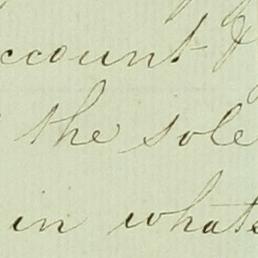 ccount
the sole
in whate